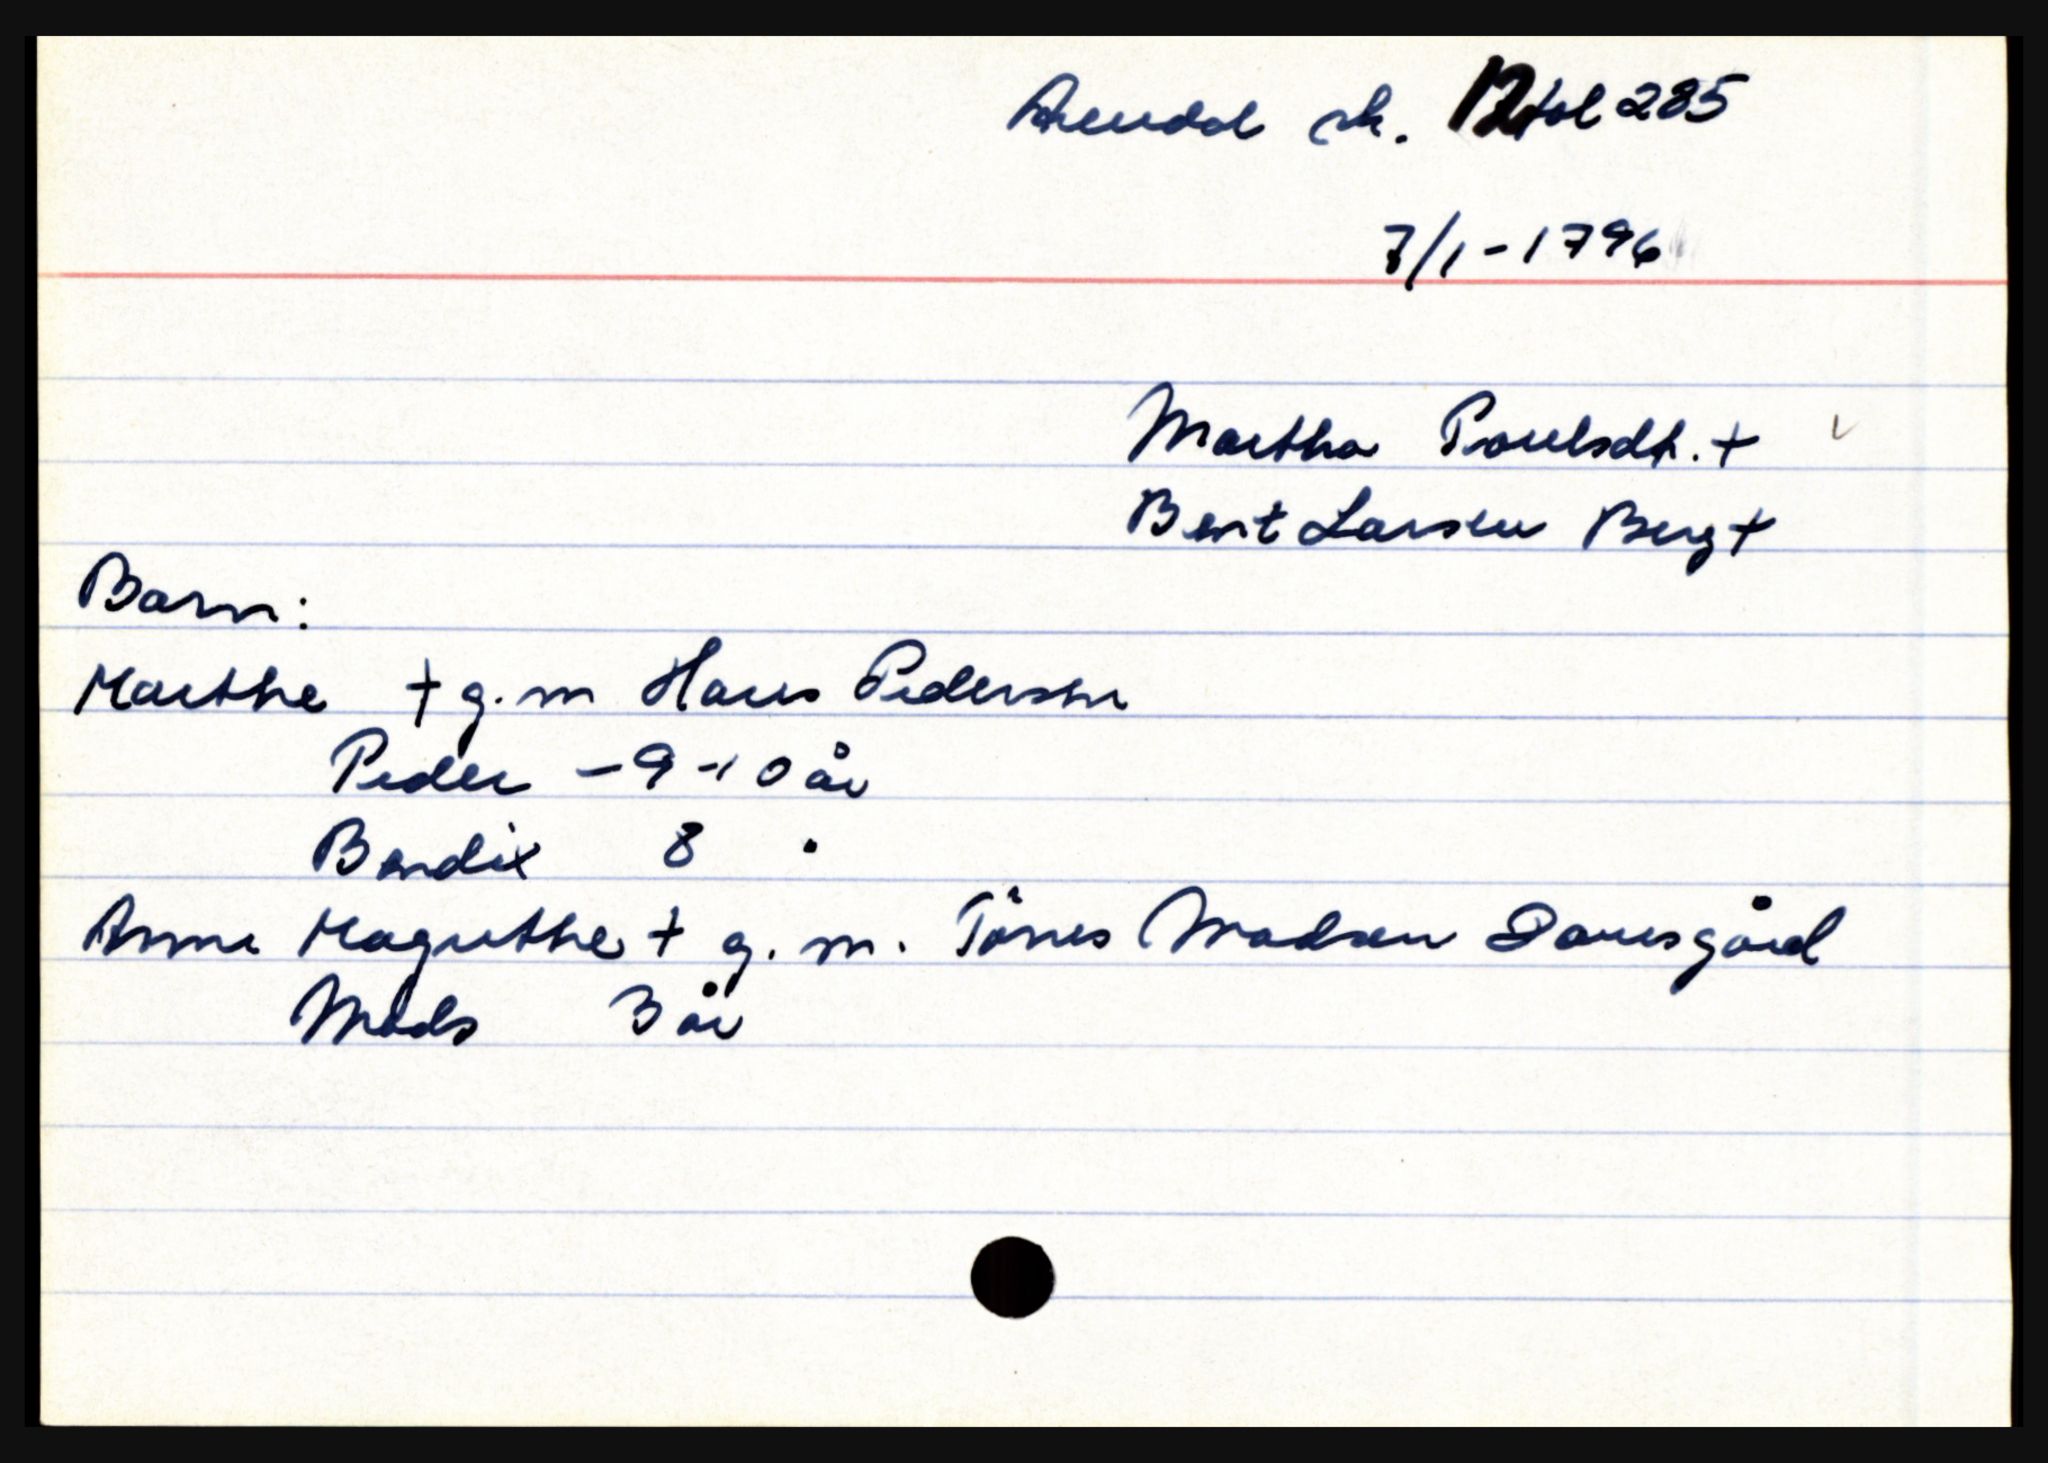 Arendal sk. 12 fol 285
7/1-1796
Martha Poulsdt. +
Bent Larsen Berg +
Barn:
Marthe + g.m Hans Pedersen
Peder - 9-10 år
Bendix 8 "
Anne Magrethe + g. m. Tönes Madsen
Mads 3 år